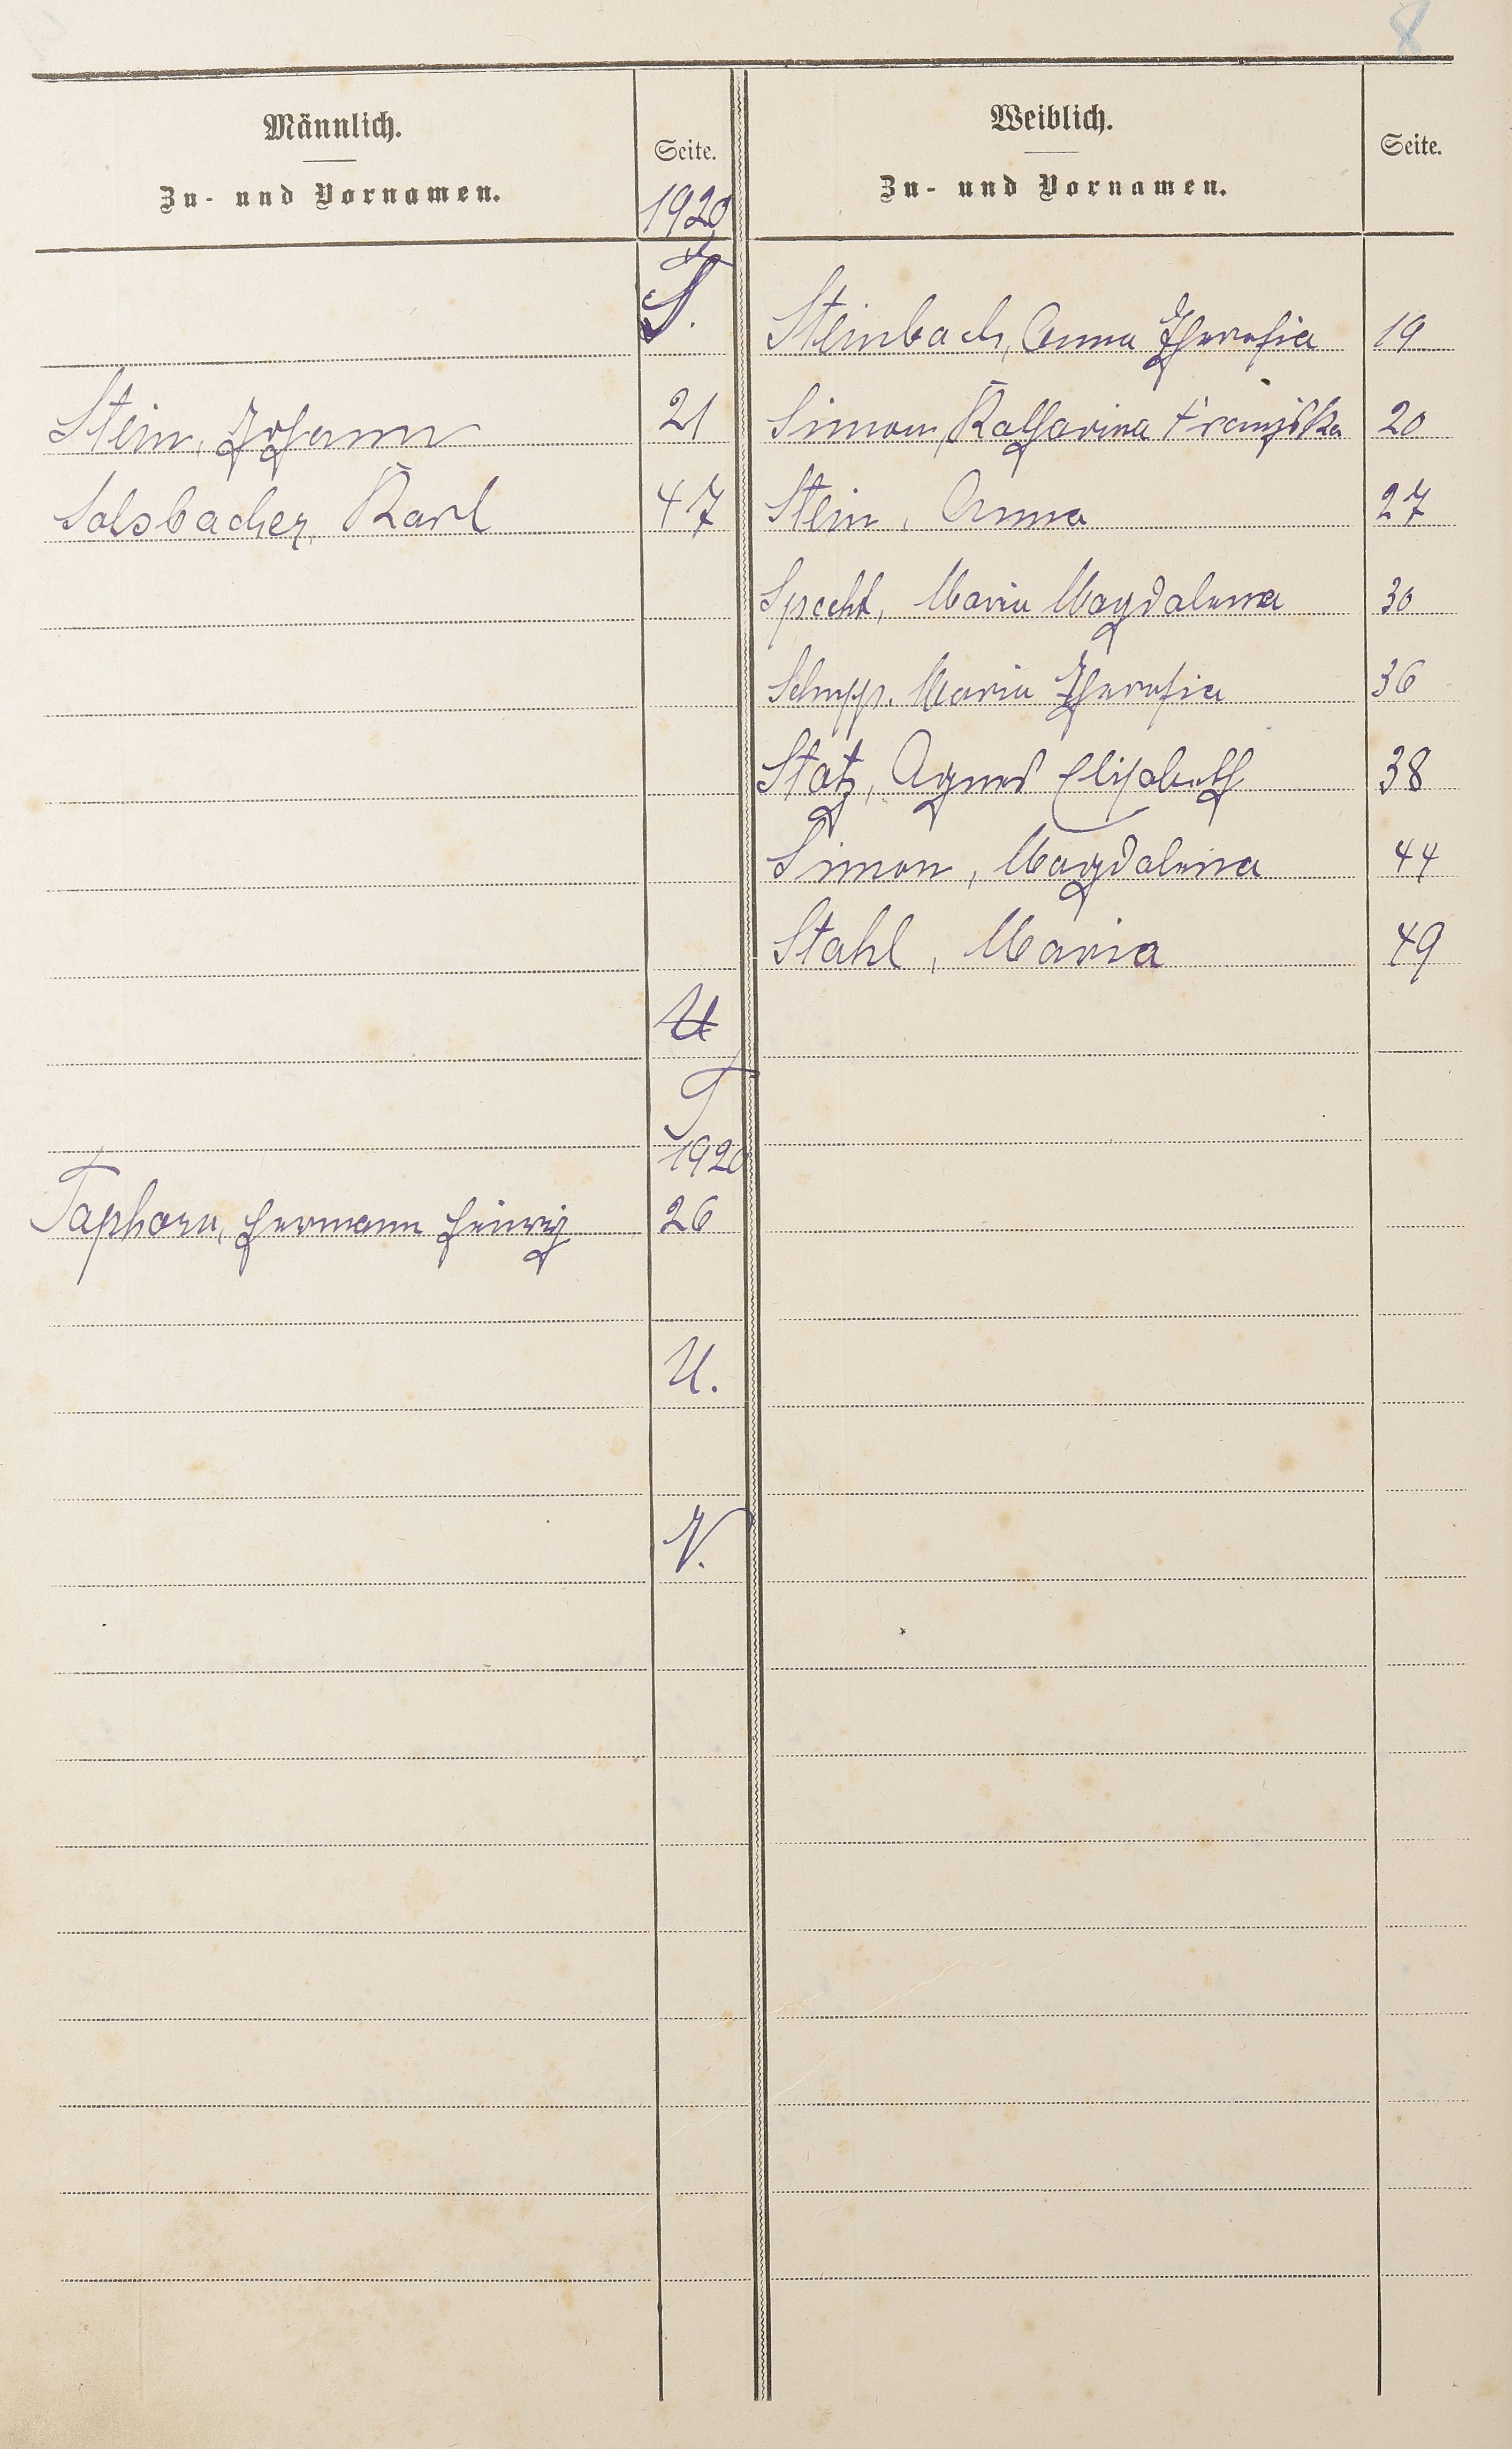 8
Männlich.
Zu- und Vornamen.
Seite.
1920
Weiblich.
Zu- und Vornamen.
Seite.
S.
Steinbach, Anna Theresia 19
Stein, Johann 21
Simon, Katharina Franziska 20
Salsbacher, Karl 47
Stein, Anna 27
Specht, Maria Magdalena 30
Maria Theresia 36
Statz, Agnes Elisabeth 38
Simon, Magdalena 44
Stahl, Maria 49
U
T
1920
Taphorn, Hermann Heinrich 26
U.
V.